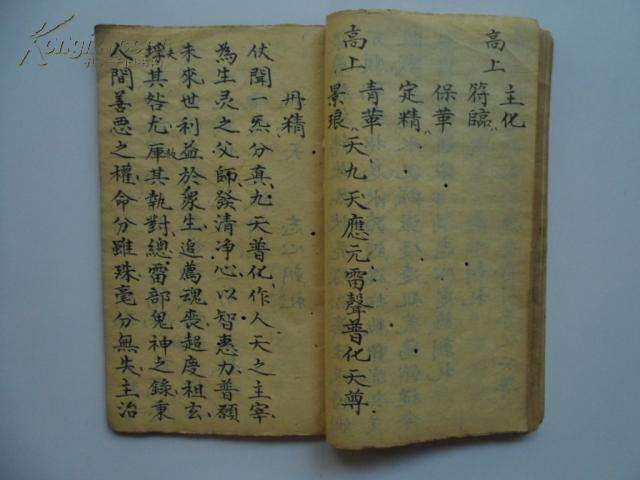 高上
主化
符臨
保華
定精
青華
景琅
高上
天九天應元雷聲普化天尊
丹精
伏聞一炁分真九天普化作人天之主宰
為生灵之父師發清净心以智惠力普願
未來世利益於衆生追薦魂喪超度祖玄
其咎尤其執對總雷部鬼神之錄秉
人間善悪之權命分雖珠毫分無失主治